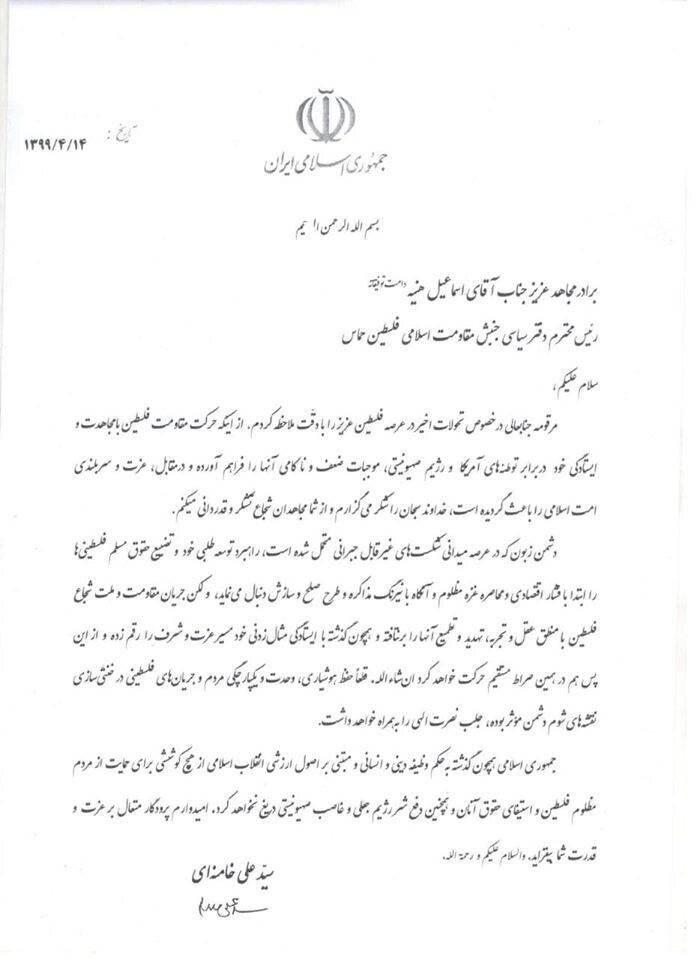 تاریخ : ۱۳۹۹/۴/۱۴
جمهوری اسلامی ایران
بسم الله الرحمن ا یم
برادر مجاهد عزیز جناب آقای اسماعیل هنیه دامت توفیقاته
رئیس محترم دفتر سیاسی جنبش مقاومت اسلامی فلسطین حماس
سلام علیکم،
مرقومه جنابعالی درخصوص تحولات اخیر در عرصه فلسطین عزیز را با دقّت ملاحظه کردم. از اینکه حرکت مقاومت فلسطین با مجاهدت و
ایستادگی خود دربرابر توطئه‌های آمریکا و رژیم صهیونیتی، موجبات ضعف و ناکامی آنها را فراهم آورده و درمقابل، عزت و سربلندی
امت اسلامی را باعث گردیده است، خداوند سبحان را شکر می‌گزارم و از شما مجاهدان شجاع تشکر و قدردانی میکنم.
دشمن زبون که در عرصه میدانی شکست‌های غیرقابل جبرانی متحمل شده است، راهبرد توسعه طلبی خود و تضییع حقوق مسلم فلسطینی‌ها
را ابتدا با فشار اقتصادی و محاصره غزه مظلوم و آنگاه با نیرنگ مذاکره و طرح صلح و سازش دنبال می‌نماید، ولکن جریان مقاومت و ملت شجاع
فلسطین با منطق عقل و تجربه، تهدید و تطمیع آنها را برنتافته و همچون گذشته با ایستادگی مثال‌زدنی خود مسیر عزت و شرف را رقم زده و از این
پس هم در همین صراط مستقیم حرکت خواهد کرد ان‌شاءالله. قطعاً حفظ هوشیاری، وحدت و یکپارچگی مردم و جریان‌های فلسطینی در خنثی‌سازی
نقشه‌های شوم دشمن مؤثر بوده، جلب نصرت الهی را به همراه خواهد داشت.
جمهوری اسلامی همچون گذشته به حکم وظیفه دینی و انسانی و مبتنی بر اصول ارزشی انقلاب اسلامی از هیچ کوششی برای حمایت از مردم
مظلوم فلسطین و استیفای حقوق آنان و همچنین دفع شر رژیم جعلی و غاصب صهیونیتی دریغ نخواهد کرد. امیدوارم پروردگار متعال بر عزت و
قدرت شما بیفزاید. والسلام علیکم و رحمة الله.
سیّد علی خامنه‌ای